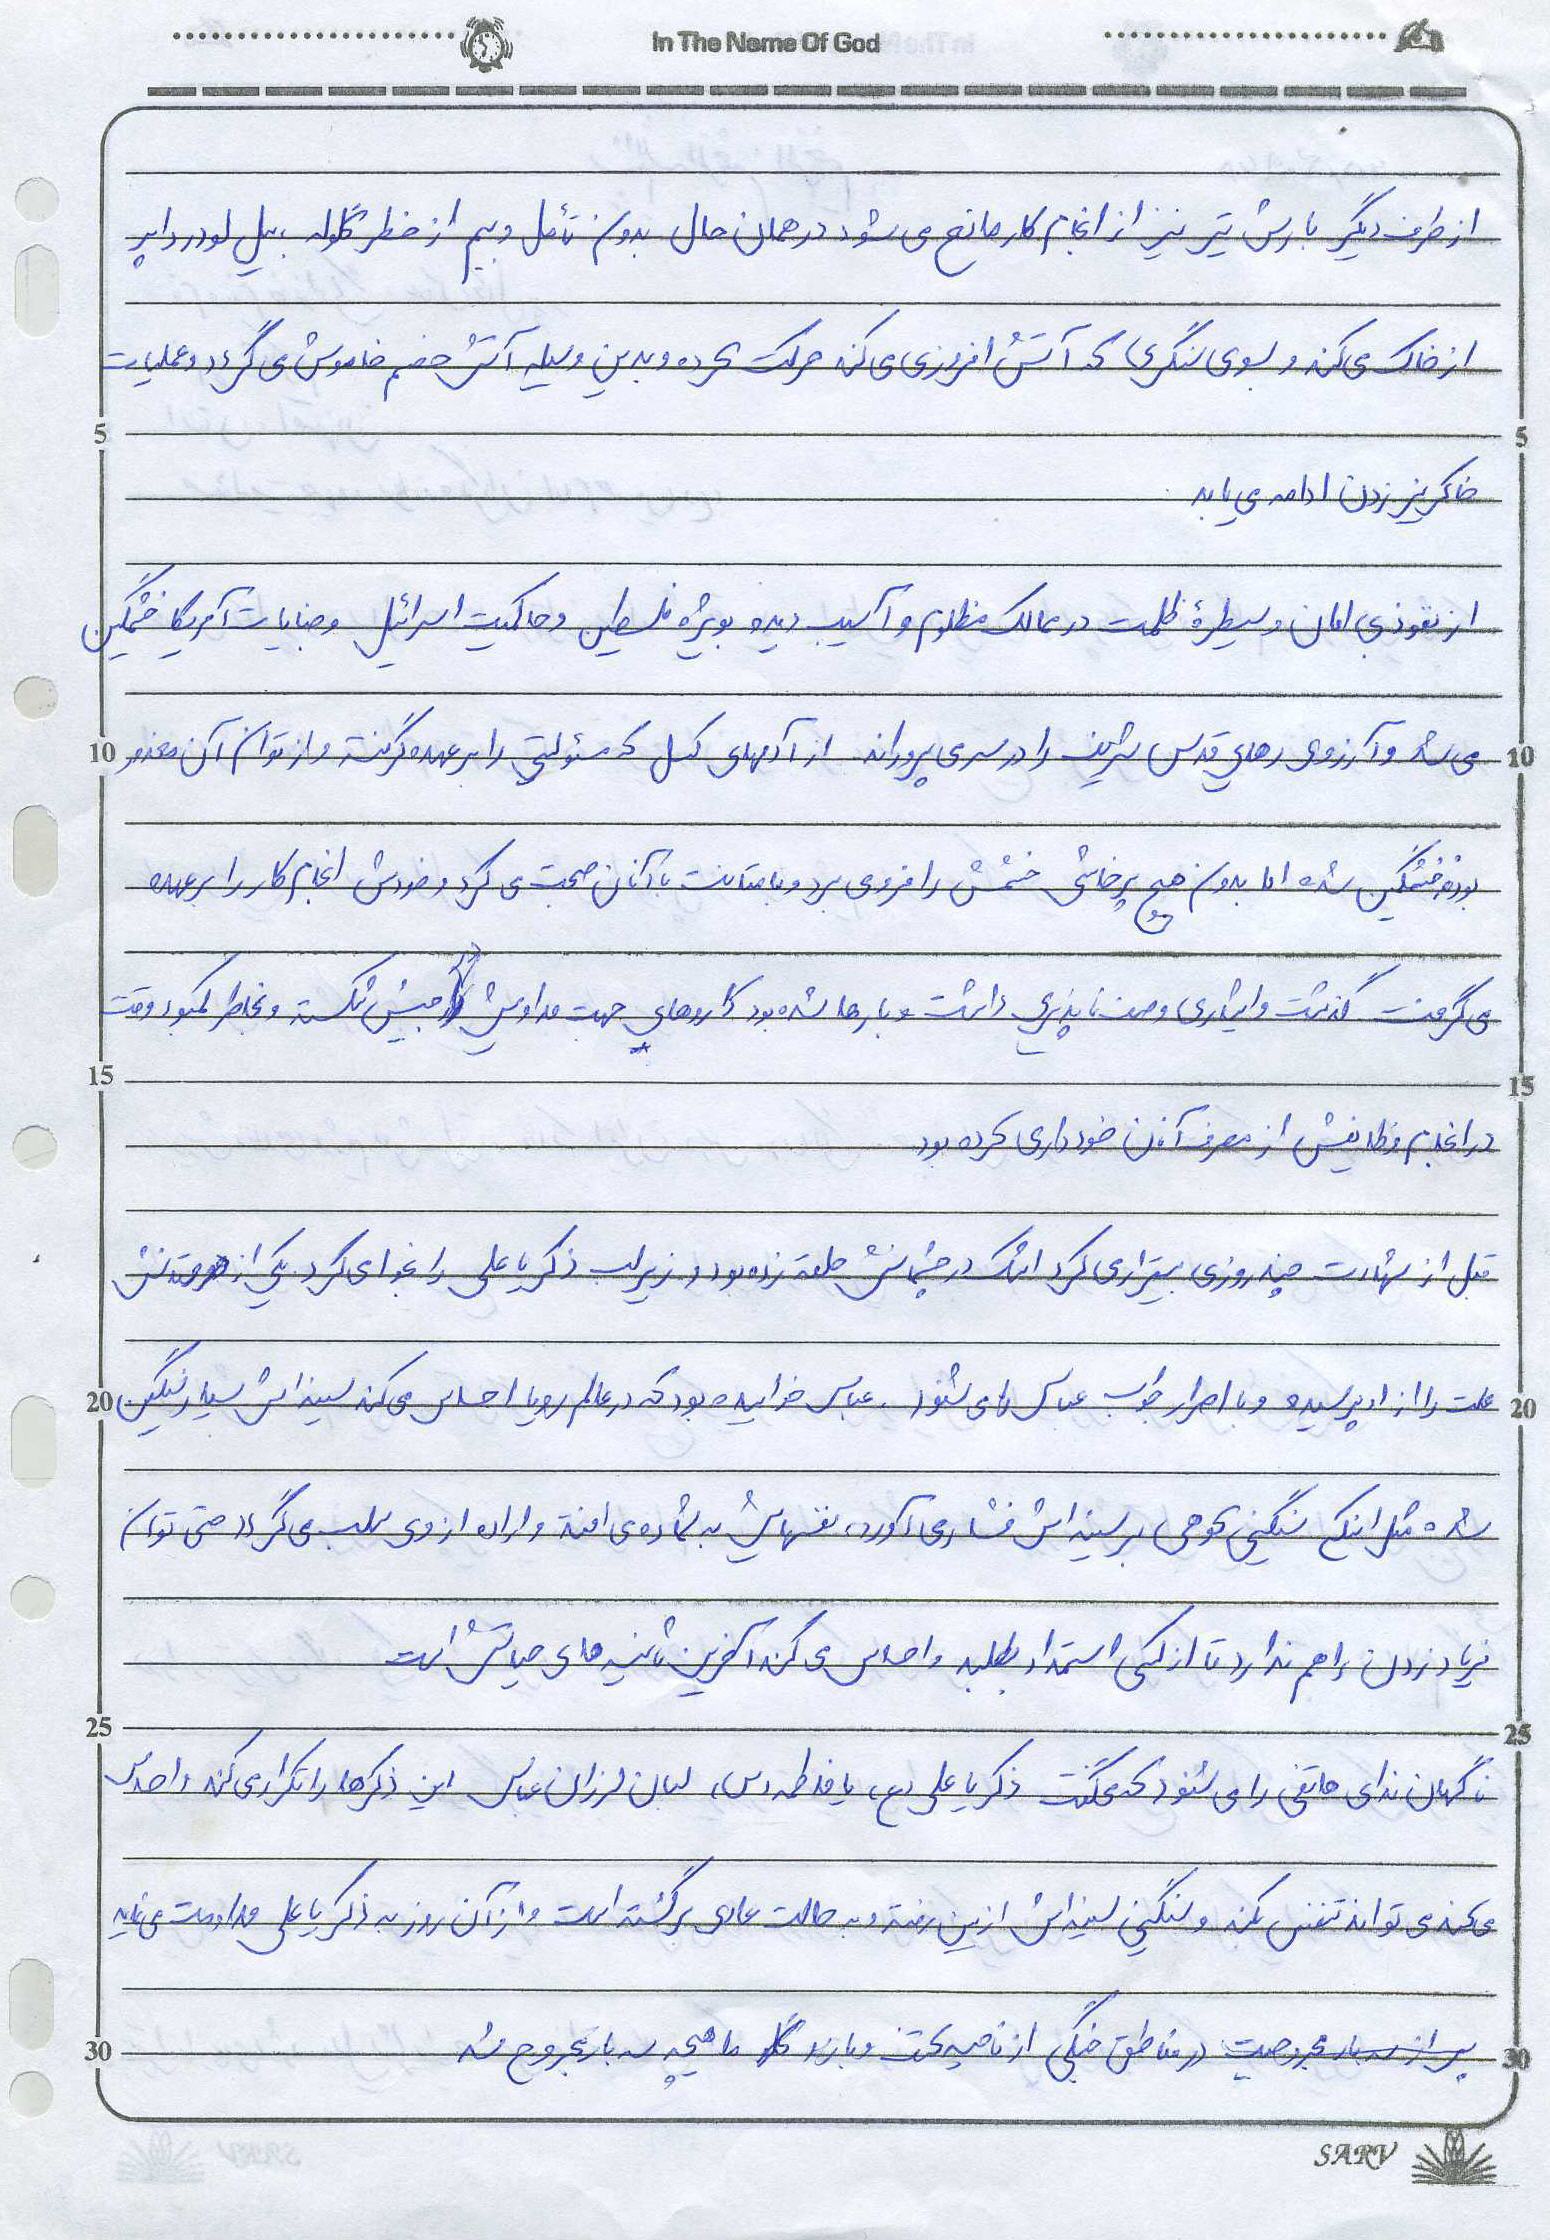 In The Name Of God
از طرف دیگر بارش تیر نیز از انجام کار مانع می شود در همان حال بدون تأمل و بیم از خطر گلوله بیل لودر را پر
از خاک می کند و بسوی سنگری که آتش افروزی می کند حرکت کرده و بدین وسیله آتش خصم خاموش می گردد و عملیات
5 5
خاکریز زدن ادامه می یابد
از نفوذ بی امان و سیطرهٔ ظلمت در ممالک مظلوم و آسیب دیده بویژه فلسطین و حاکمیت اسرائیل و جنایات آمریکا خشمگین
10 می شد و آرزوی رهایی قدس شریف را در سر می پروراند. از آدمهای کسل که مسئولیتی را بر عهده گرفته و از توان آن معذور 10
بودند خشمگین شده اما بدون هیچ پرخاشی خشمش را فرو می برد و با متانت با آنان صحبت می کرد و خودش انجام کار را بر عهده
می گرفت گذشت و ایثاری وصف ناپذیری داشت و بارها شده بود داروهایی جهت مداویش را در جیبش گذاشته و بخاطر کمبود وقت
15 15
در انجام وظایفش از مصرف آنان خودداری کرده بود.
قبل از شهادت چند روزی بیقراری می کرد اشک در چشمانش حلقه زده بود و زیر لب ذکر یا علی را نجوا می کرد. یکی از دوستانش
20 علت را از او پرسیده و با اصرار جواب عباس را می شنود. عباس خوابیده بود که در عالم رویا احساس می کند سینه اش بسیار سنگین 20
شده مثل اینکه سنگینی کوهی بر سینه اش فشار می آورد، نفسهایش به شماره می افتد و اراده از وی سلب می گردد حتی توان
فریاد زدن را هم ندارد تا از کسی استمداد بطلبد و احساس می کند آخرین ثانیه های حیاتش است
25 25
ناگهان ندای هاتفی را می شنود که می گفت ذکر یا علی (ع)، یا فاطمه (س)، لبان لرزان عباس این ذکرها را تکرار می کند و احساس
می کند می تواند تنفس بکند و سنگینی سینه اش از بین رفته و به حالت عادی برگشته است و از آن روز به ذکر یا علی مداومت می نماید
30 پس از سه بار مجروحیت در مناطق جنگی از ناحیه کتف و بازو ماهیچه سه بار مجروح شد 30
SARV